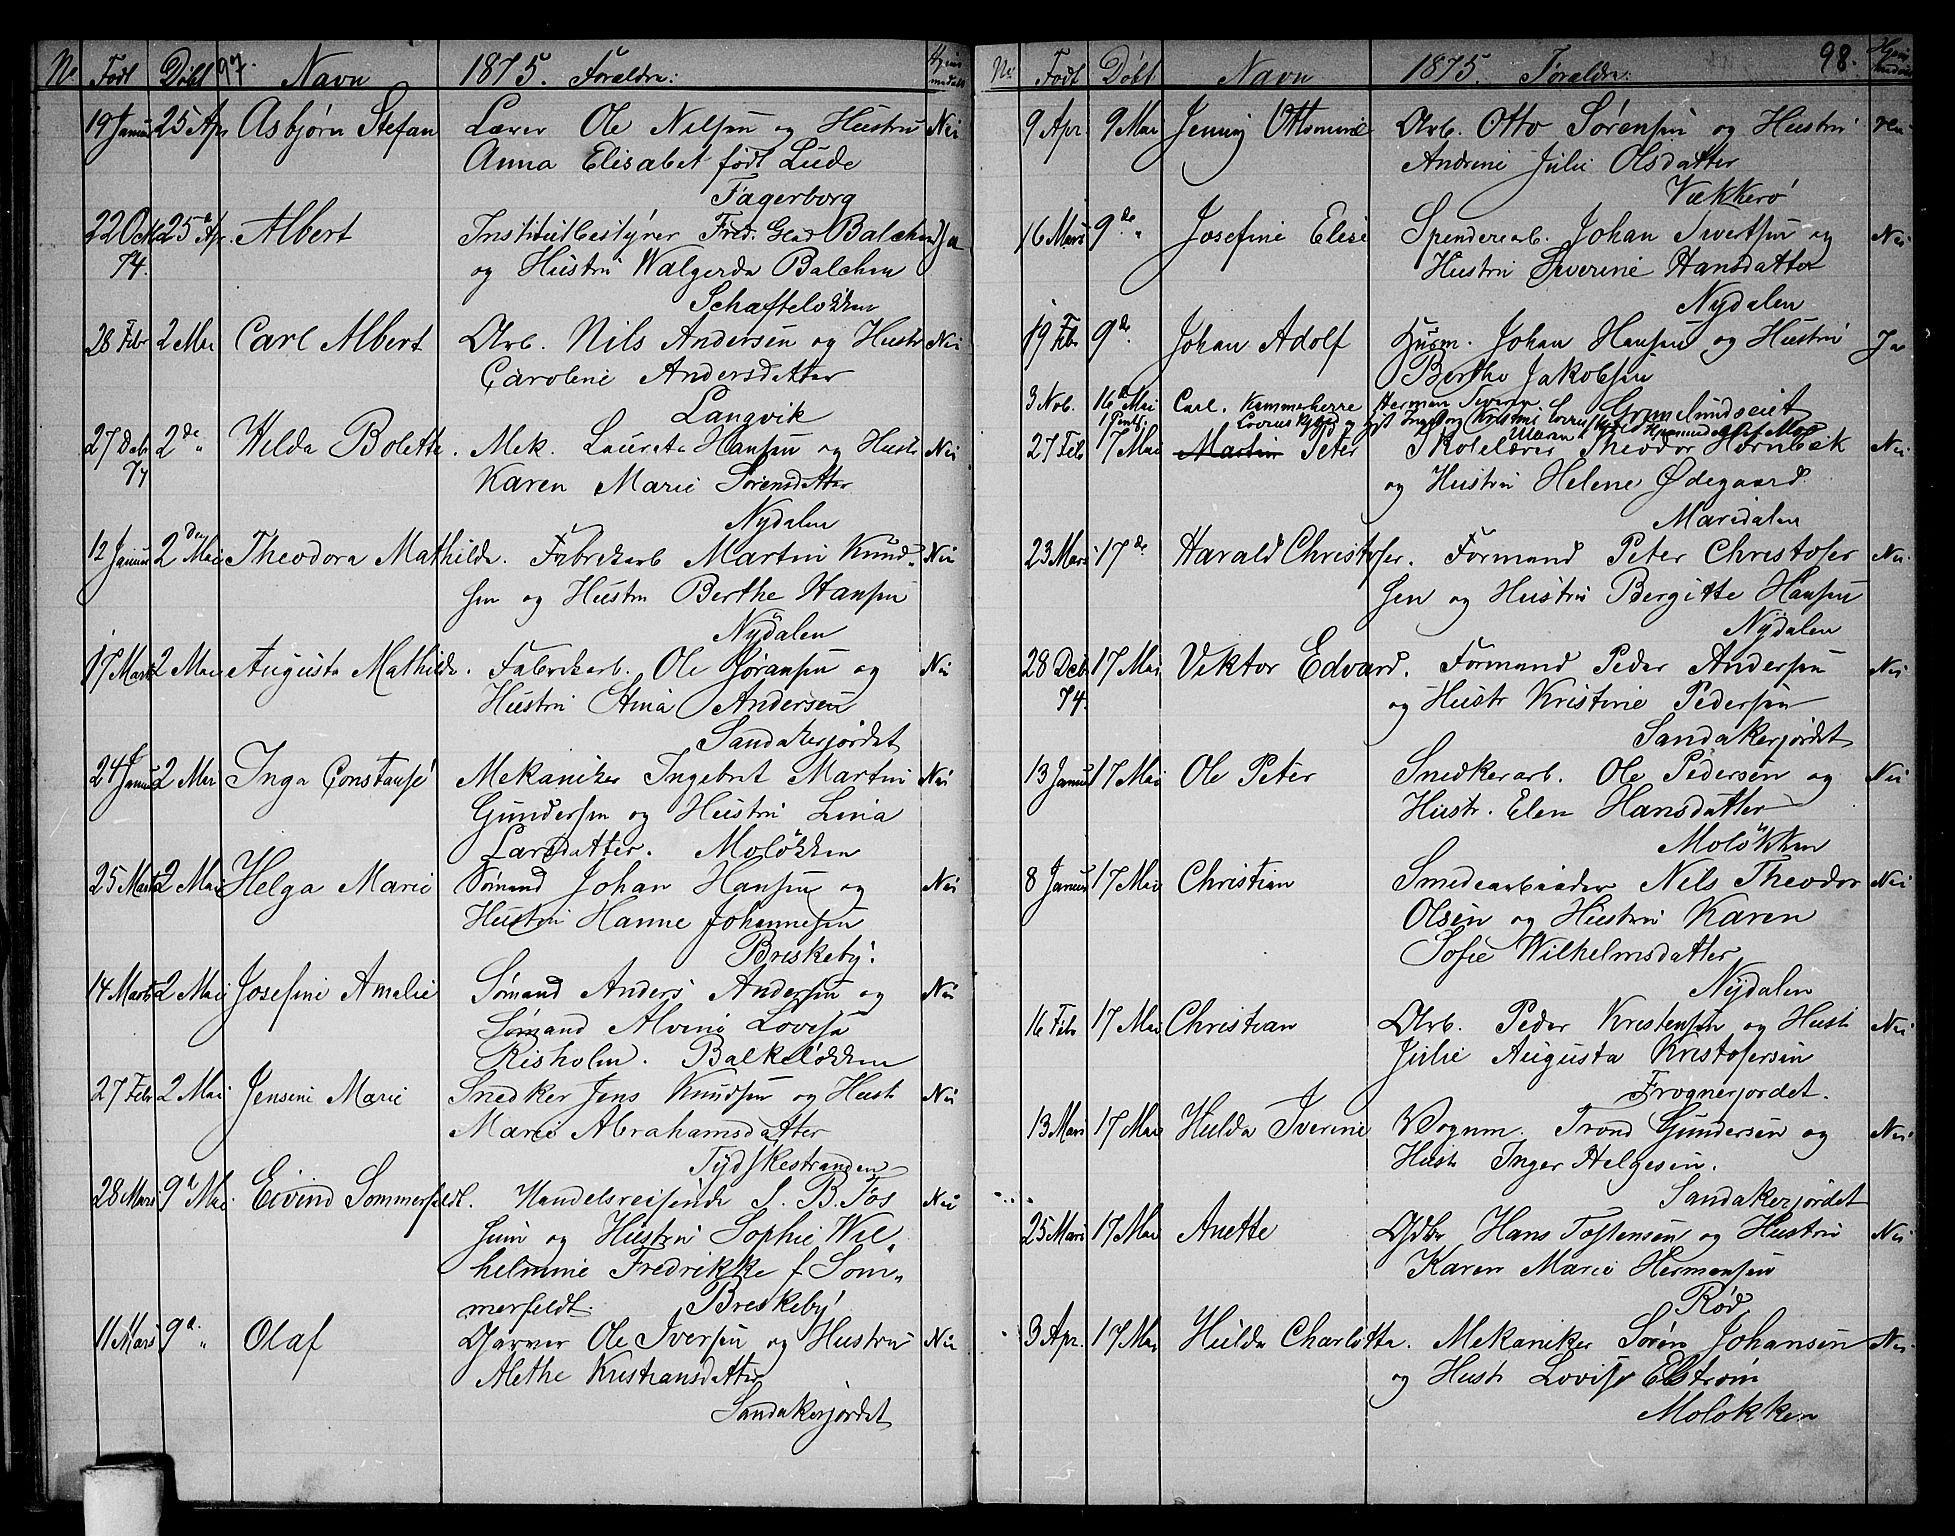 No Født Døbt 97. Navn 1875. Forældre: Hjemmedøbt
19 Januar 25 Apr Asbjørn Stefan Lærer Ole Nilsen og Hustru Nei
Anna Elisabet født Lude
Fagerborg
22 Oct 25de Apr. Albert Institutbestyrer Fred. Glad Balchen Ja
74. og Hustru Walgerda Balchen
Schafteløkken
28 Febr 2 Mai Carl Albert Arb. Nils Andersen og Hustr Nei
Caroline Andersdatter
Langvik
27 Deb 2de " Hilda Bolette. Mek. Lauretz Hansen og Hustr Nei
74 Karen Marie Sørensdatter
Nydalen
12 Januar 2den Mai Theodora Mathilde. Fabrikarb Martin Knud- Nei
sen og Hustru Berthe Hansen
Nydalen
17 Marts 2 Mai Augusta Mathilde. Fabrikarb. Ole Gøransen og Nei
Hustru Andersen
Sandakerjordet
24 Januar 2 Mai Inga Constanse Mekaniker Ingebret Martin Nei
Gundersen og Hustru Lina
Larsdatter. Moløkken
25 Marts 2 Mai Helga Marie Sømand Johan Hansen og Nei
Hustru Hanne Johannesen
Briskeby.
14 Marts 2 Mai Josefine Amalie Sømand Anders Andersen og Nei
Sømand Alvine Lovisa
Risholm. Balkeløkken
27 Febr 2 Mai Jensine Marie Snedker Jens Knudsen og Hustr Nei
Marie Abrahamsdatter
Tydskestranden
28 Mars 9de Mai. Eivind Sommerfeldt. Handelsreisende S. B. Fos Nei
sum og Hustru Sophie Wil-
helmine Fredrikke f Som-
merfeldt. Briskeby
11 Mars 9de " Olaf Garver Ole Iversen og Hustru Nei
Alethe Kristiansdatter
Sandakerjordet
No Født Døbt Navn 1875. Forældre: 98. Hjemmedøbt
9 Apr. 9 Mai Jenny Ottomine Arb. Otto Sørensen og Hustru Nei
Andrine Julie Olsdatter
Vækkerø
16 Mars 9de " Josefine Elise Spenderiarb. Johan Sivertsen og Nei
Hustru Severine Hansdatter
Nydalen
19 Febr 9de. Johan Adolf Husm. Johan Hansen og Hustru Ja
Berthe Jakobsen
3 Nob. 16de Mai Carl. Kammerherre Herman Severin
Grimelundseiet
27 Feb 17 Mai Martin Peter Skolelærer Theodor Hornbæk Nei
og Hustru Helene Ødegaard
Maridalen
23 Mars 17de Harald Christofer. Formand Peter Christofer Nei
sen og Hustru Bergitte Hansen
Nydalen
28 Deb 17 Mai Viktor Edvard. Formand Peder Andersen Nei
74. og Hustr Kristine Pedersen
Sandakerjordet
13 Januar 17 Mai Ole Peter Snedkerarb. Ole Pedersen og Nei
Hustr. Elen Hansdatter
Moløkken
8 Januar 17 Mai Christian Smedearbeider Nils Theodor Nei
Olsen og Hustru Karen
Sofie Wilhelmsdatter
Nydalen
16 Febr 17 Mai Christian Arb. Peder Kristensen og Hustr Nei
Julie Augusta Kristofersen
Frognerjordet.
13 Mars 17 Mai Hulda Iverine Vognm. Trond Gundersen og Nei
Hustr Inger Helgesen.
Sandakerjordet
25 Mars 17 Mai Anette Gdbr Hans Tostensen og Hustru Nei
Karen Marie Hermansen
Rød
3 Apr. 17 Mai Hulda Charlotte. Mekaniker Søren Johansen Nei
og Hustr Lovise Elstrøm
Moløkken